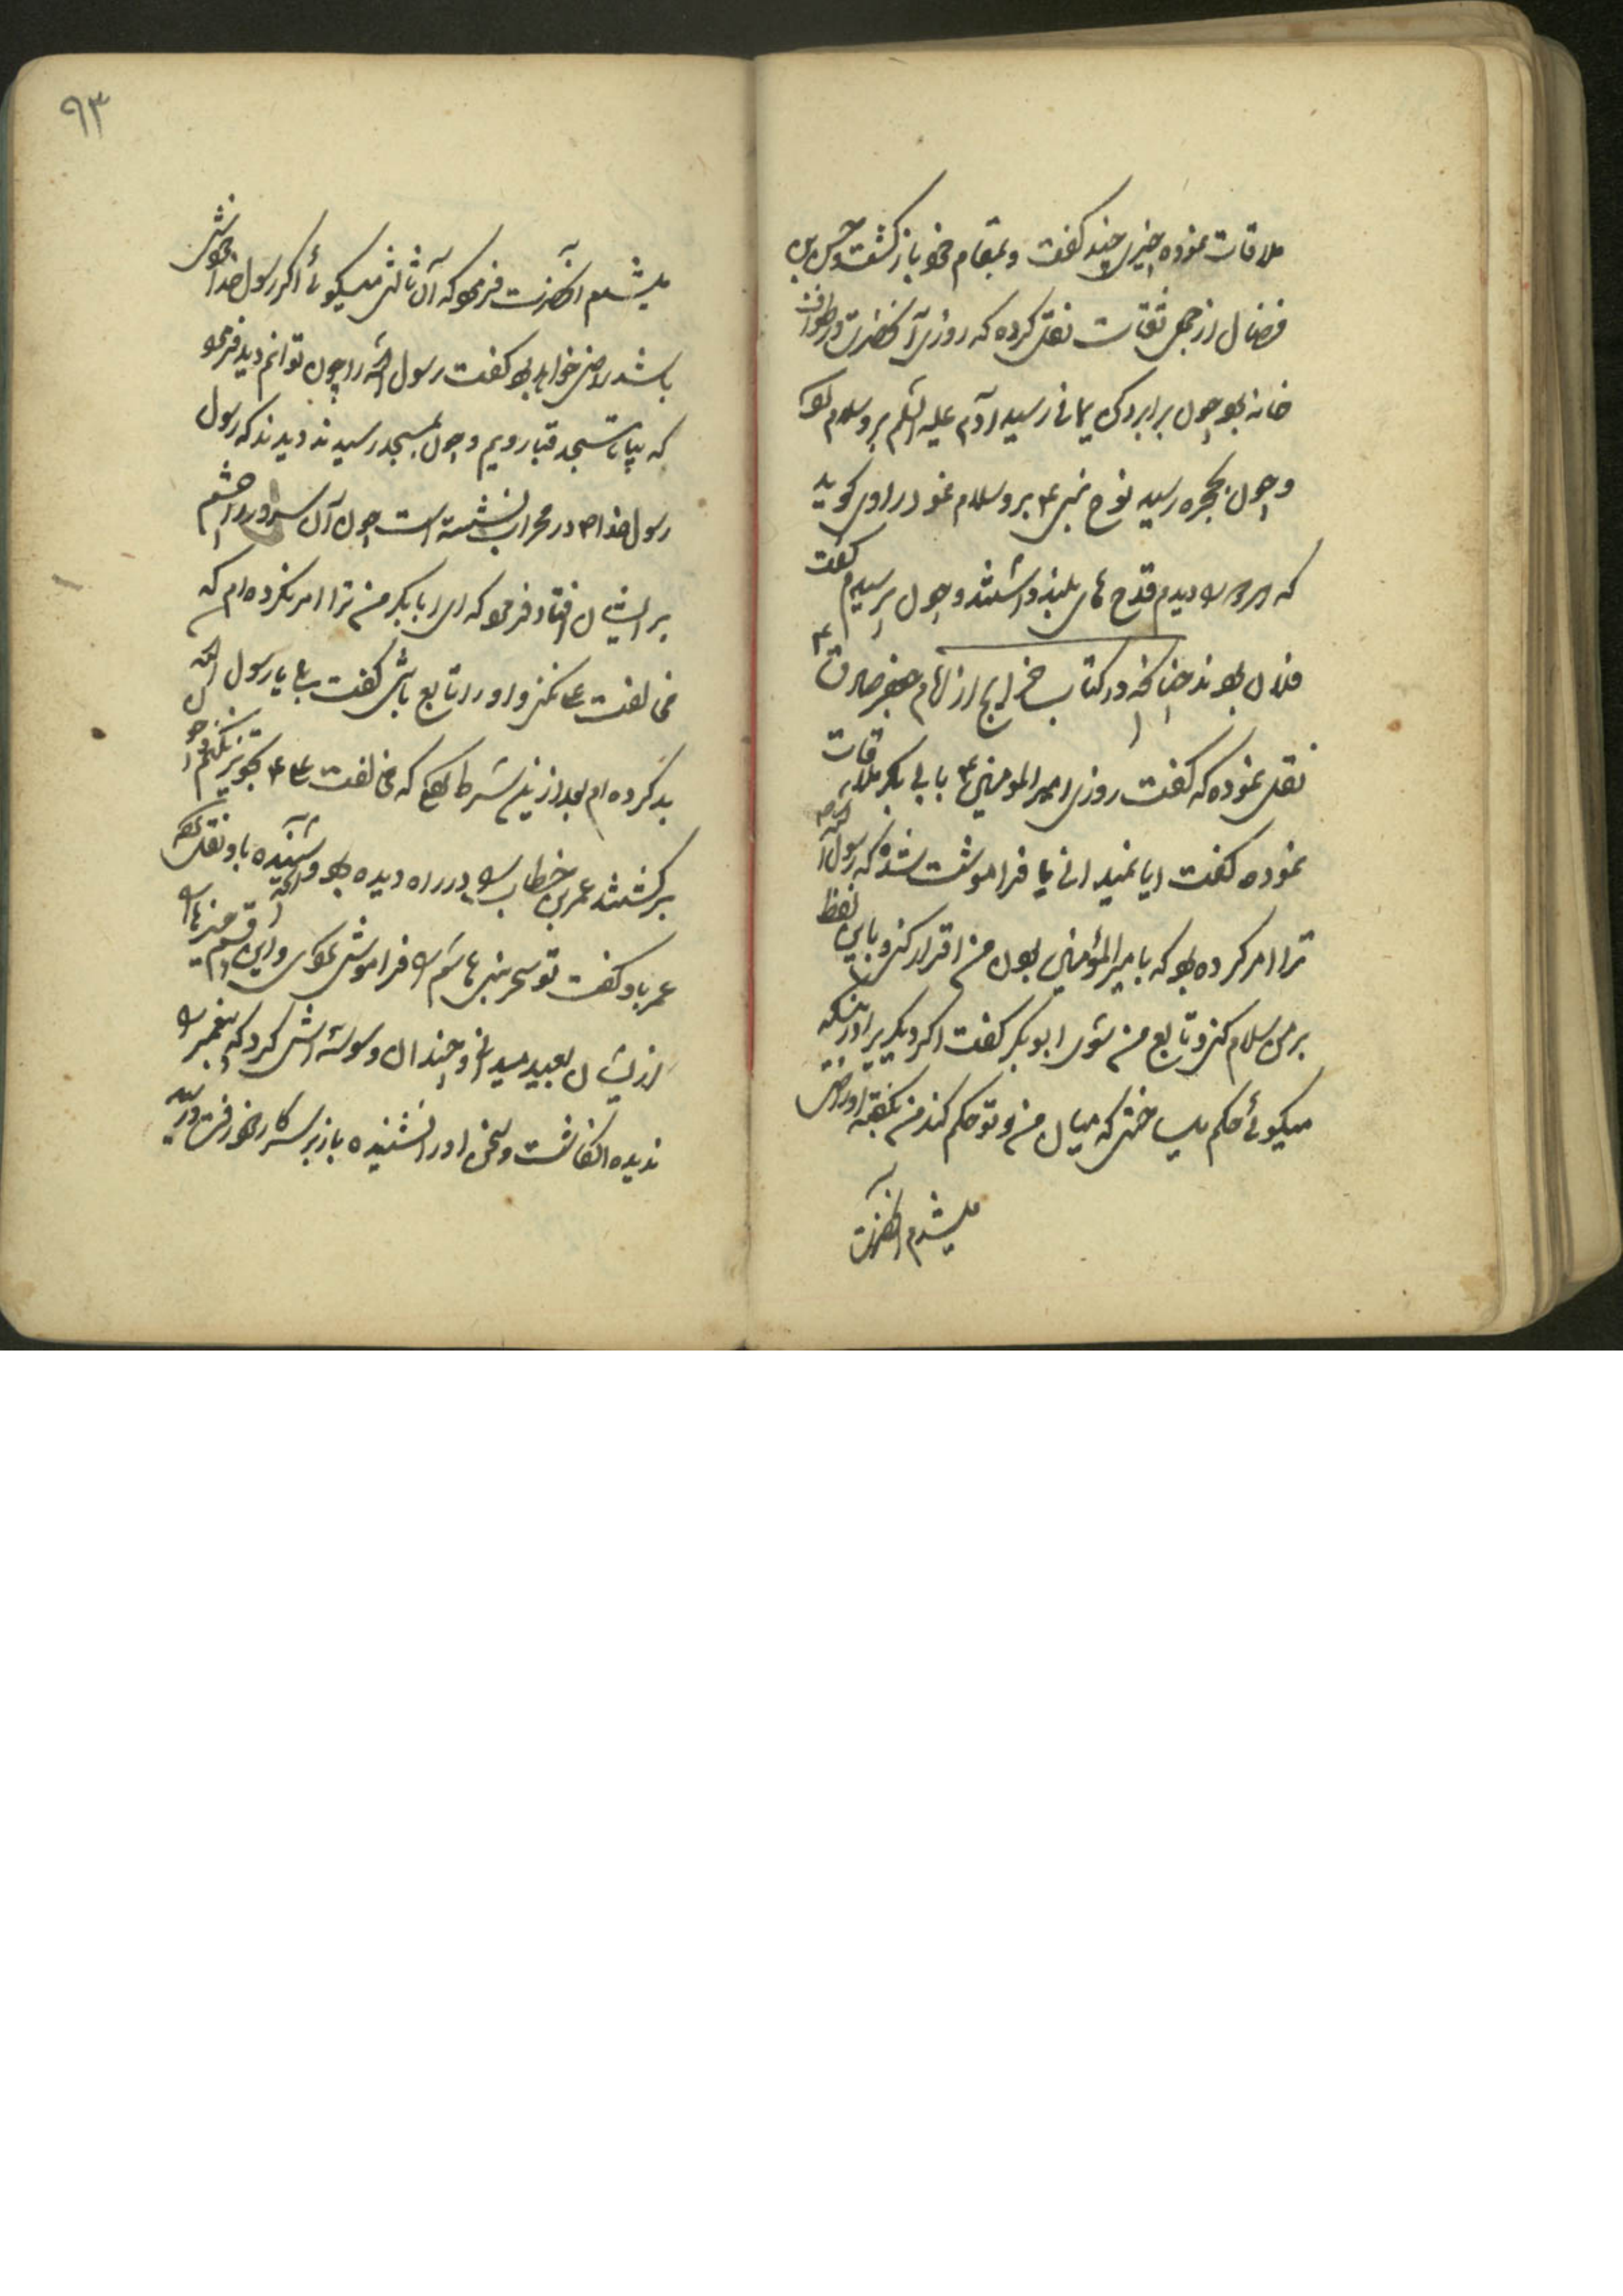 ملاقات نموده چیزی چند گفت و بمقام خود بازگشت و حسن بن
فضال از جمعی ثقات نقل کرده که روزی آنحضرت در طواف
خانه بود چون برابر رکن یمانی رسید آدم علیه السلم برو سلام کرد
و چون بحجره رسید نوح نبی ۴ برو سلام نمود راوی گوید
که دیدم قدح های بلند داشتند و چون پرسیدم گفت
فلان بودند چنانچه در کتاب خرایج از امام جعفر صادق ۴
نقل نموده که گفت روزی امیر المومنین ۴ با ابی بکر ملاقات
نموده گفت ایا نمیدانی یا فراموشت شده که رسول الله ص
ترا امر کرده بود که بامیر المؤمنین بودن من اقرار کنی و باین لفظ
بر من سلام کنی و تابع من شوی ابوبکر گفت اگر دیگریرا درینکه
میگوئی حکم میساختی که میان من و تو حکم کند من بگفته او راضی
میشدم آنحضرت
۹۳
میشدم آنحضرت فرمود که آن ثالثی میگوئی اگر رسول خدا خودش
باشد راضی خواهی بود گفت رسول الله را چون توانم دید فرمود
که بیا تا بمسجد قبا رویم و چون بمسجد رسیدند دیدند که رسول
رسول خدا ص در محراب نشسته است چون آن سرور را چشم
بر ایشان افتاد فرمود که ای ابا بکر من ترا امر نکرده ام که
مخالفت علی نکنی و او را تابع باشی گفت بلی یا رسول الله
بد کرده ام بعد ازین شرط کردم که مخالفت علی ۴ تجویز نکنم و چون
برگشتند عمر بن خطاب را در راه دیده بود و شنیده باو نقل کرد
عمر باو گفت تو سحر بنی هاشم را فراموش نمودی و این قسم چیزها را
از ایشان بعید میدانی و چندان وسوسه اش کرد که پیغمبر را
ندیده انگاشت و سخن او را نشنیده باز بر سر کار خود رفت و در